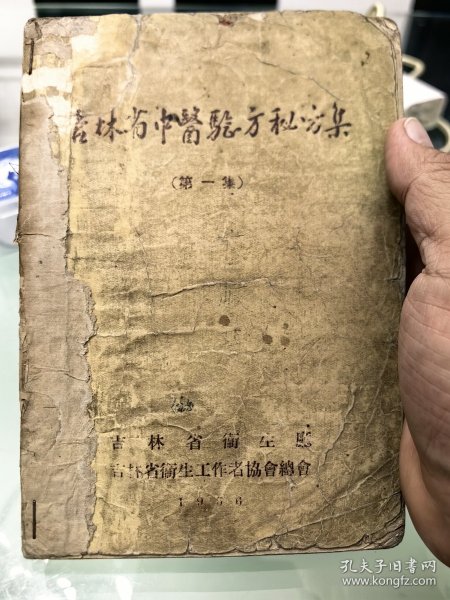 吉林省中醫驗方秘方集
（第一集）
吉林省衞生廳
吉林省衞生工作者協會總會
1956
孔夫子旧书网
www.kongfz.com